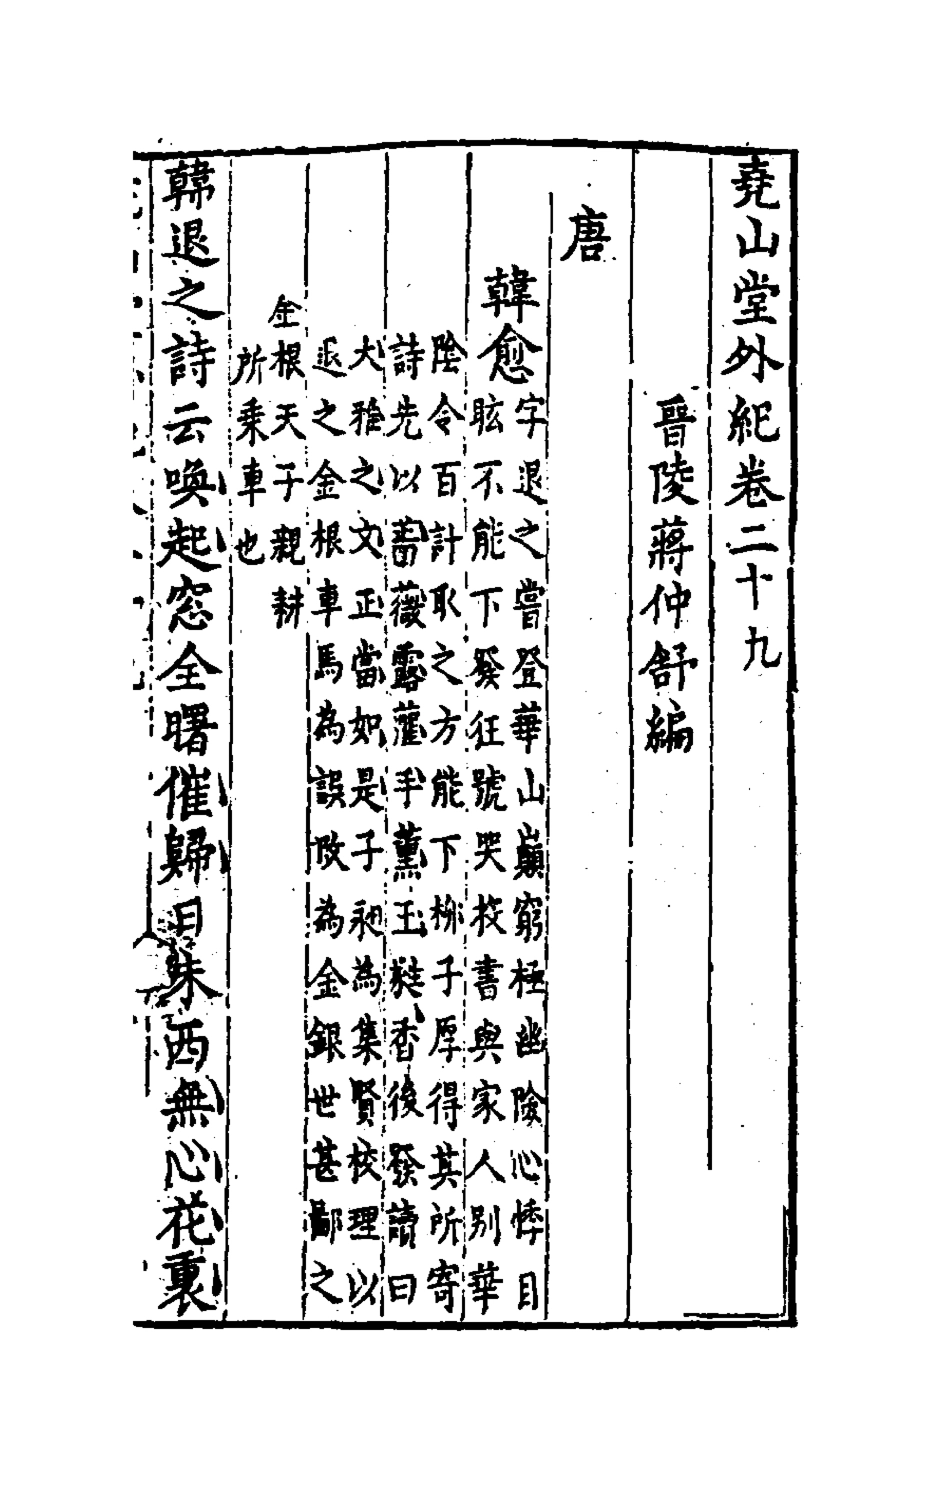 堯山堂外紀卷二十九
晉陵蔣仲舒編
唐
韓愈
字退之嘗登華山巔窮極幽險心悸目
眩不能下發狂號哭投書與家人別華
陰令百計取之方能下柳子厚得其所寄
詩先以薔薇露灌手薰玉蕤香後發讀曰
大雅之文正當如是子昶為集賢校理以
退之金根車馬為誤改為金銀世甚鄙之
金根天子親耕
所乘車也
韓退之詩云喚起窓全曙催歸日未西無心花裏